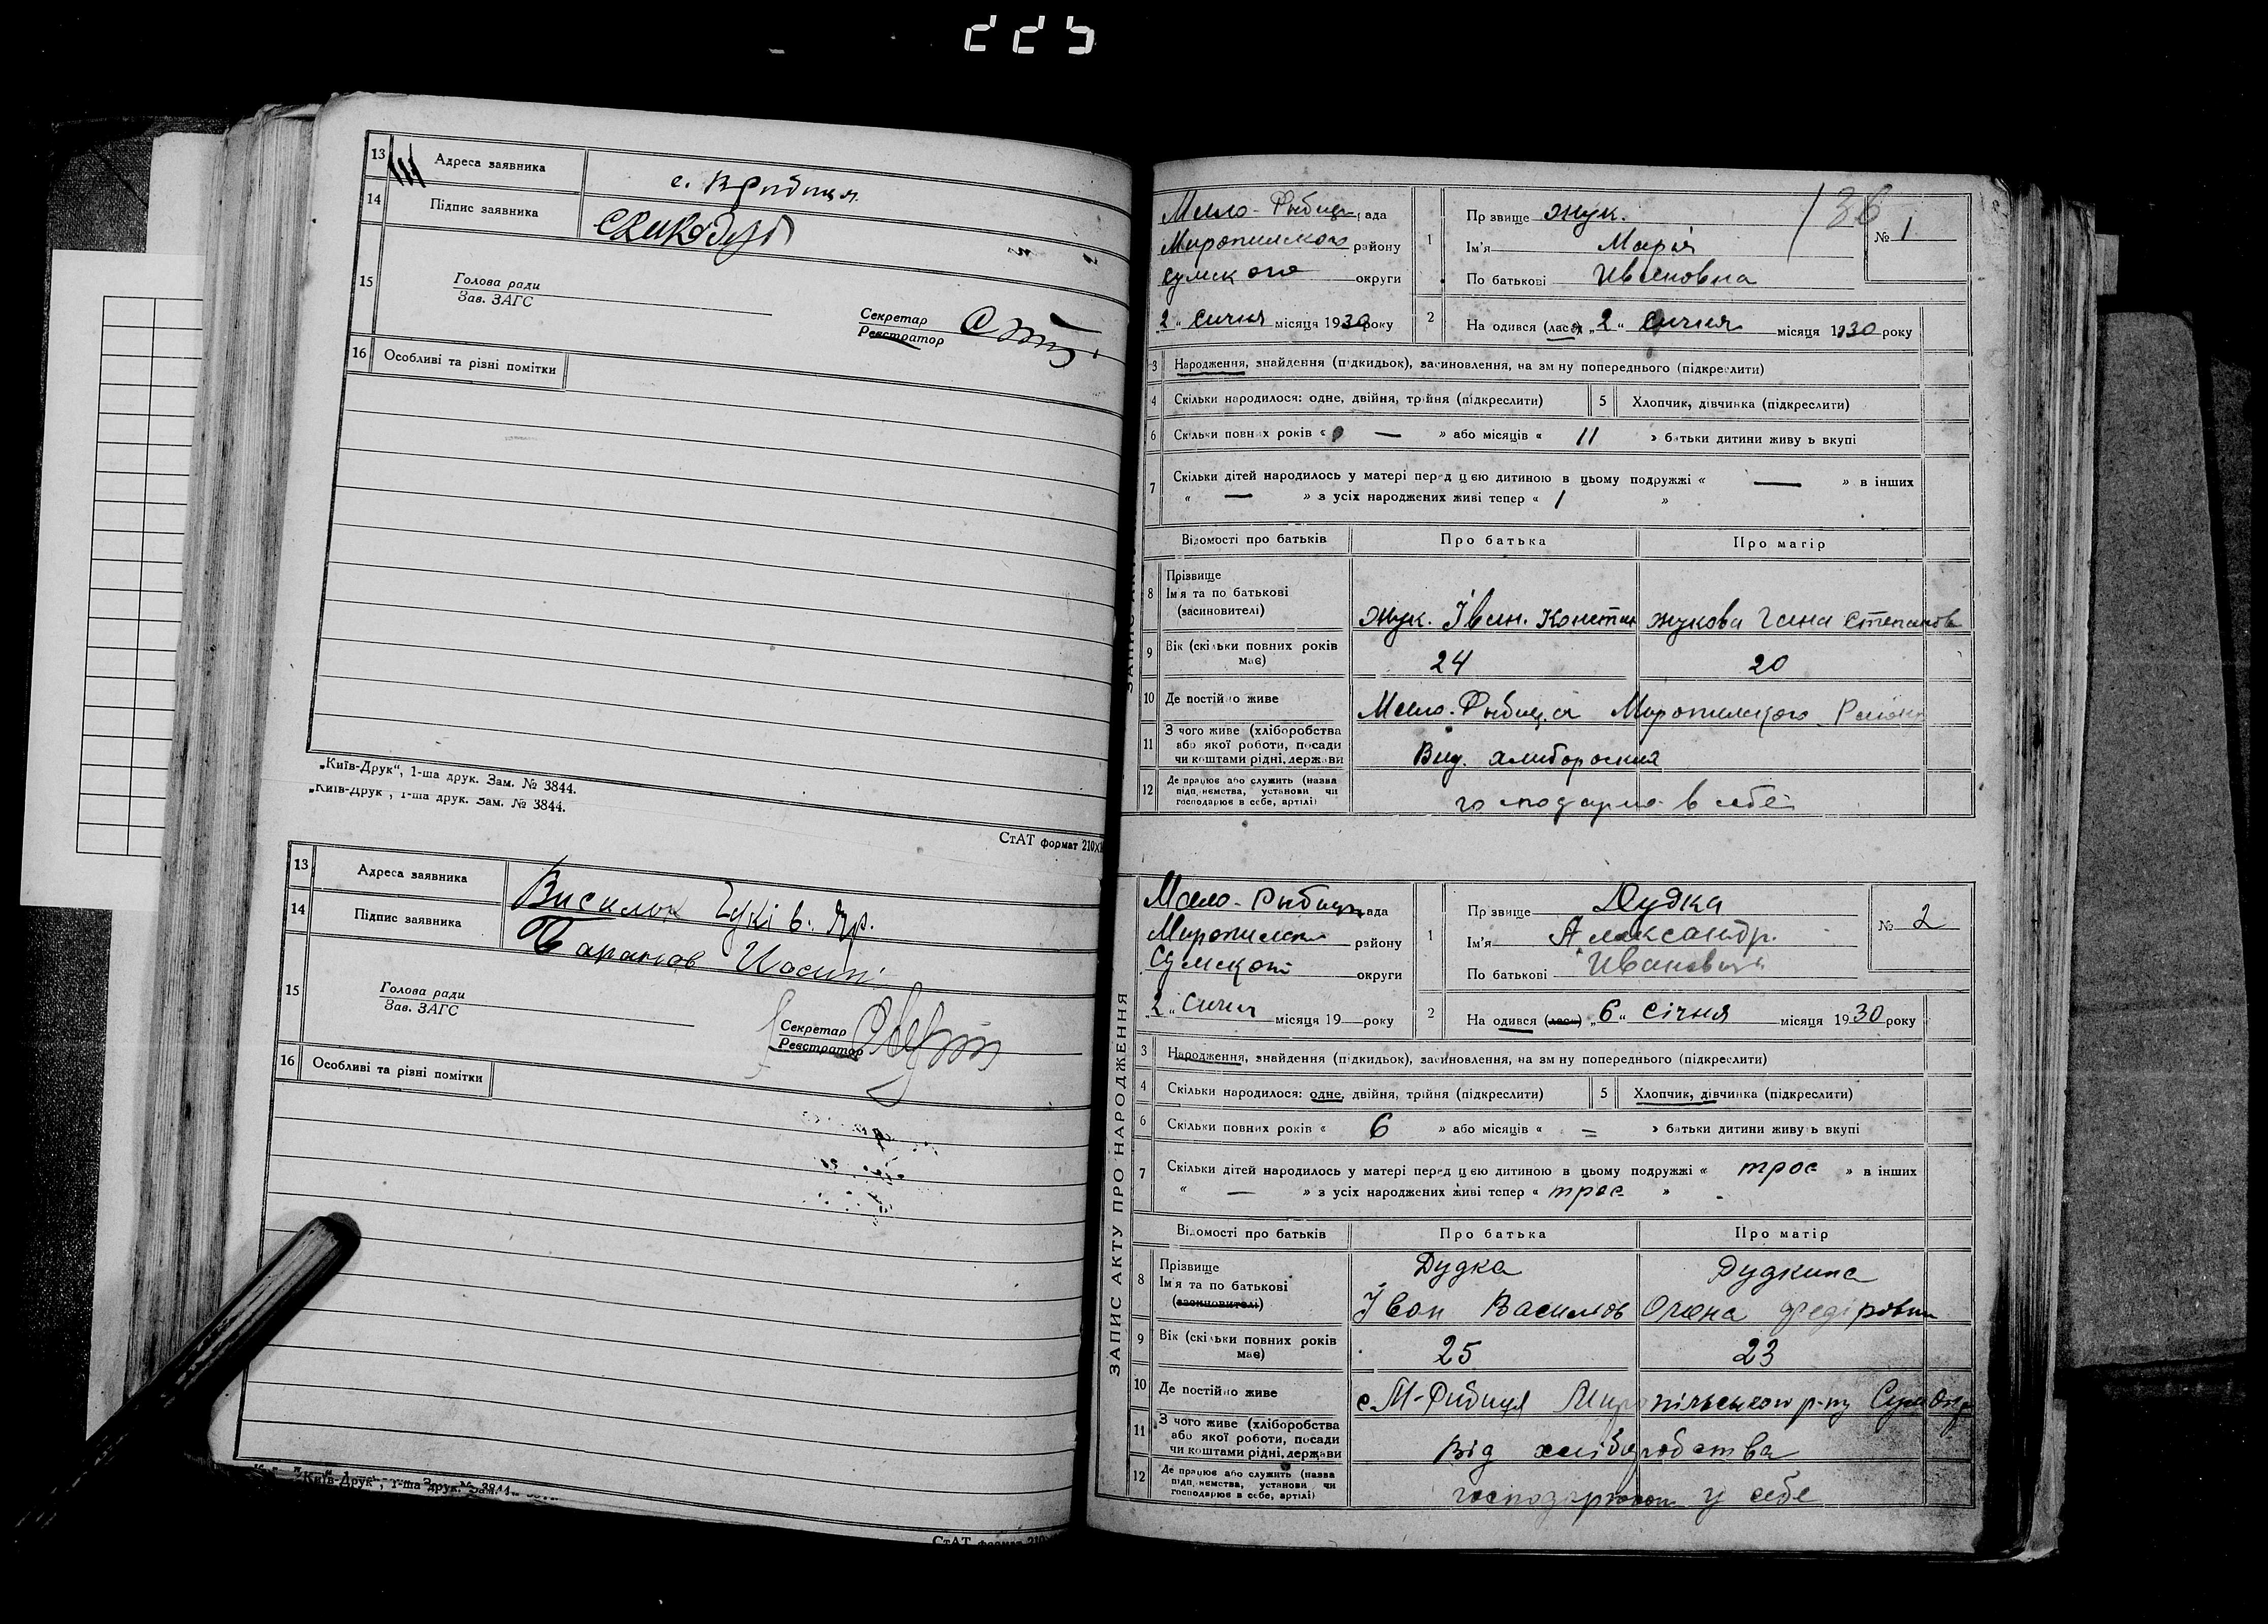 225
13 Адреса заявника
14 Підпис заявника
15 Голова ради
Зав. ЗАГС
Секретар
Реєстратор
16 Особливі та різні помітки
„Київ-Друк“, 1-ша друк. Зам. № 3844.
„Київ-Друк“, 1-ша друк. Зам. № 3844.
СтАТ формат 210×
13 Адреса заявника Висилок
14 Підпис заявника Баранов
15 Голова ради
Зав. ЗАГС
Секретар
Реєстратор
16 Особливі та різні помітки
„Київ-Друк“, 1-ша друк. Зам. № 3844.
СтАТ формат 210
136
Мало-Рыбиц рада
Миропилского району
Сумского округи
„2“ Сичня місяця 1930 року
1 Прізвище Жук.
Ім'я Марія
По батькові Ивановна
№ 1
2 На одився (лася) „2“ Сичня місяця 1930 року
3 Народження, знайдення (підкидьок), засиновлення, на зм ну попереднього (підкреслити)
4 Скільки народилося: одне, двійня, трійня (підкреслити) 5 Хлопчик, дівчинка (підкреслити)
6 Скільки повних років « — » або місяців « 11 » батьки дитини живу ь вкупі
7 Скільки дітей народилось у матері перед цією дитиною в цьому подружжі « — » в інших
« — » з усіх народжених живі тепер « 1 »
Відомості про батьків Про батька Про матір
8 Прізвище
Ім'я та по батькові
(засиновителі) Жук. Іван. Констан Жукова Ганна Степанов
9 Вік (скільки повних років має) 24 20
10 Де постійно живе Мало-Рыбица Миропилского Района
11 З чого живе (хліборобства
або якої роботи, посади
чи коштами рідні, держави Вид.
12 Де працює або служить (назва
підприємства, установи чи
господарює в себе, артілі) в себе
ЗАПИС АКТУ ПРО НАРОДЖЕННЯ
Мало-Рыбиц рада
Миропилск району
Сумског округи
„2“ Сичня місяця 19 року
1 Прізвище Дудка
Ім'я Александр.
По батькові Иванович
№ 2
2 На одився (лась) „6“ Січня місяця 1930 року
3 Народження, знайдення (підкидьок), засиновлення, на зм ну попереднього (підкреслити)
4 Скільки народилося: одне, двійня, трійня (підкреслити) 5 Хлопчик, дівчинка (підкреслити)
6 Скільки повних років « 6 » або місяців « = » батьки дитини живу ь вкупі
7 Скільки дітей народилось у матері перед цією дитиною в цьому подружжі « троє » в інших
« — » з усіх народжених живі тепер « троє »
Відомості про батьків Про батька Про матір
8 Прізвище Дудка Дудкина
Ім'я та по батькові
(засиновителі) Іван Василів Олена Федіровн
9 Вік (скільки повних років має) 25 23
10 Де постійно живе с. М-Рибиця Миропільського р-ну
11 З чого живе (хліборобства
або якої роботи, посади
чи коштами рідні, держави Від хліборобства
12 Де працює або служить (назва
підприємства, установи чи
господарює в себе, артілі) у себе